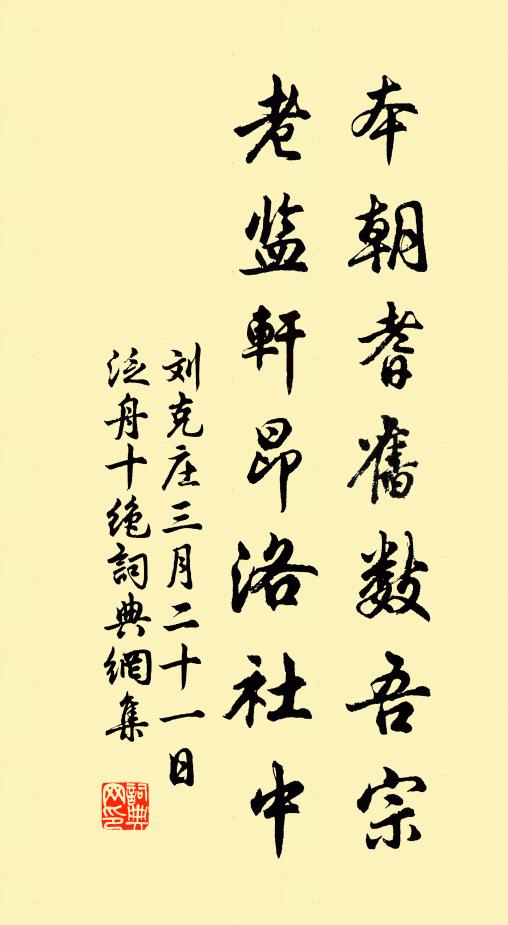 本朝耆舊数吾宗
老监軒昂洛社中
刘克庄三月二十一日
泛舟十绝詞典網集
詞典
网印